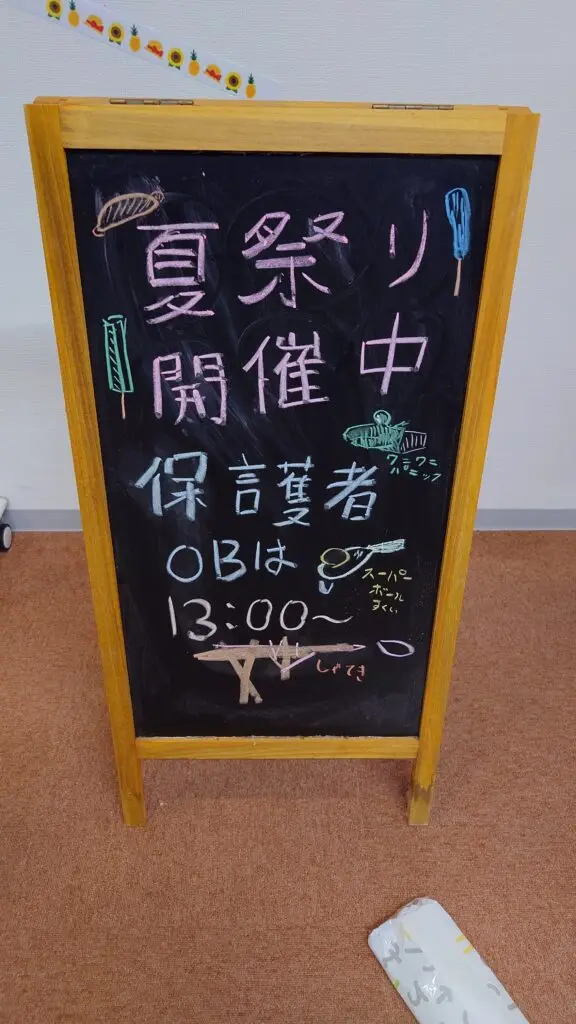 夏祭り
開催中
ワニワニ
パニック
保護者
OBは
スーパー
ボール
すくい
13:00～
しゃてき